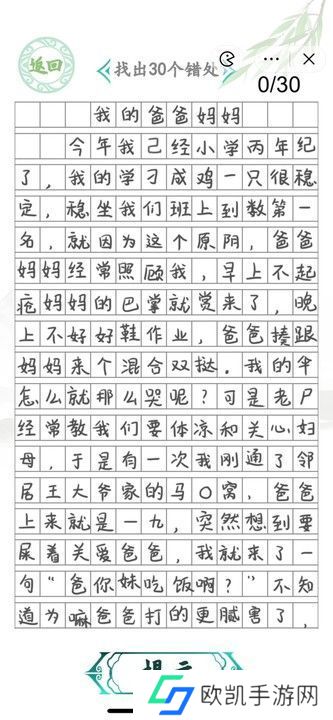 返回
找出30个错处
0/30
我的爸爸妈妈
今年我己经小学丙年纪
了，我的学刁成鸡一只很穏
定，穏坐我们班上到数第一
名，就因为这个原阴，爸爸
妈妈经常照顾我，早上不起
疤妈妈的巴掌就觉来了，晚
上不好好鞋作业，爸爸揍跟
妈妈来个混合双挞。我的半
怎么就那么哭呢？可是老尸
经常教我们要体凉和关心妇
母，于是有一次我刚通了邻
居王大爷家的马〇窝，爸爸
上来就是一九，突然想到要
尿着关爱爸爸，我就来了一
句“爸你妹吃饭啊？”不知
道为嘛爸爸打的更腻害了，
提示
欧凯手游网